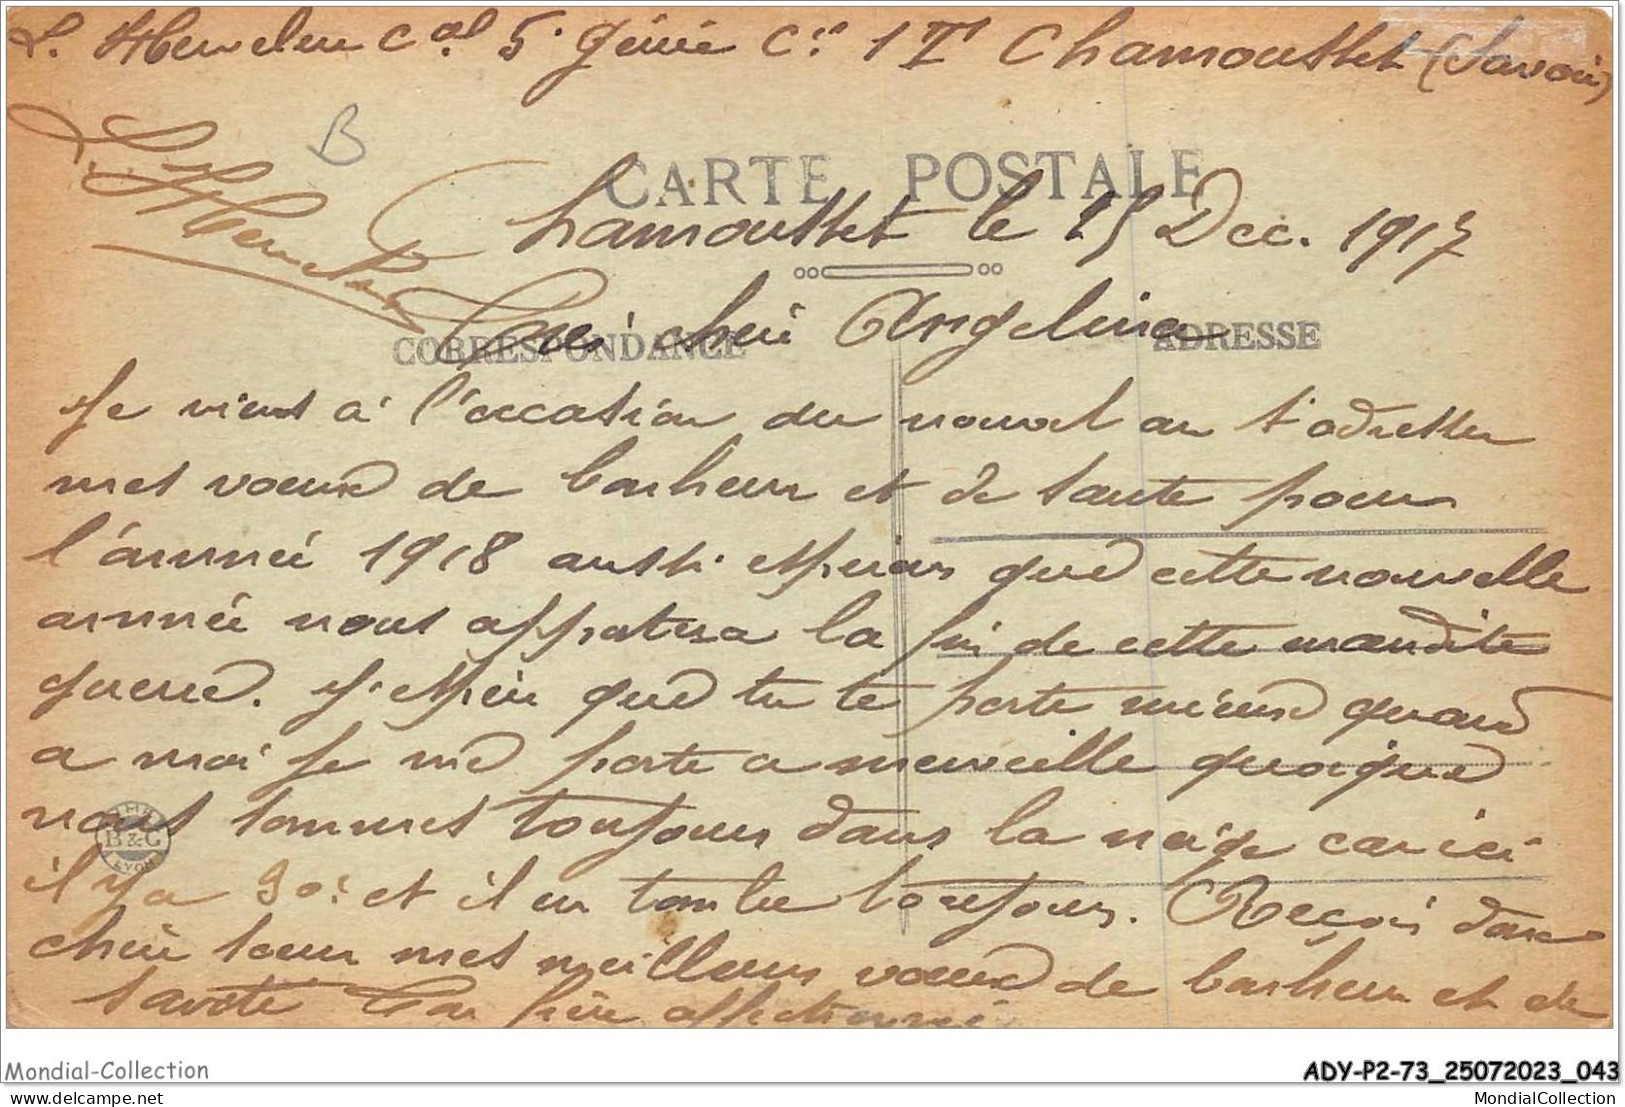 L. C al 5e Génie Cie 1 T Chamousset (Savoie)
B
CARTE POSTALE
Chamousset le 15 Dec. 1917
CORRESPONDANCE
ADRESSE
cheri Angelina
Je viens à l'occasion du nouvel an t'adresser
mes voeux de bonheur et de santé pour
l'année 1918 aussi espérons que cette nouvelle
année nous apportera la fin de cette maudite
guerre. J'espère que tu te porte mieux quand
a moi je me porte a merveille quoique
nous sommes toujours dans la neige car ici
il y a 30c et il en tombe toujours. Reçois donc
chère soeur mes meilleurs voeux de bonheur et de
santé Ton frère affectionné
B&G
LYON
Mondial-Collection
ADY-P2-73_25072023_043
delcampe.net
MondialCollection